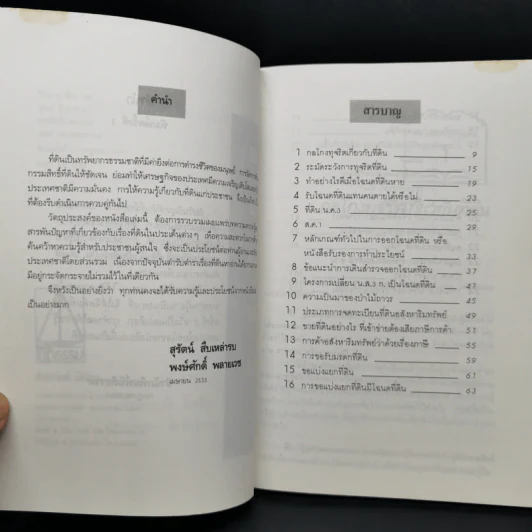 คำนำ
ที่ดินเป็นทรัพยากรธรรมชาติที่มีค่ายิ่งต่อการดำรงชีวิตของมนุษย์
กรรมสิทธิ์ที่ดินให้ชัดเจน ย่อมทำให้เศรษฐกิจของประเทศมีความเจริญ
ประเทศชาติมีความมั่นคง การให้ความรู้เกี่ยวกับที่ดินแก่ประชาชน
ที่ต้องรีบดำเนินการควบคู่กันไป
วัตถุประสงค์ของหนังสือเล่มนี้ ต้องการรวบรวมและเผยแพร่บทความ
สารพันปัญหาที่เกี่ยวข้องกับเรื่องที่ดินในประเด็นต่าง ๆ เพื่อความสะดวก
ค้นคว้าหาความรู้สำหรับประชาชนผู้สนใจ ซึ่งจะเป็นประโยชน์ต่อท่านผู้อ่าน
ประเทศชาติโดยส่วนรวม เนื่องจากปัจจุบันตำรับตำราเรื่องที่ดินหาอ่านได้ยาก
มีอยู่กระจัดกระจายไม่รวมไว้ในที่เดียวกัน
จึงหวังเป็นอย่างยิ่งว่า ทุกท่านคงจะได้รับความรู้และประโยชน์จากหนังสือ
เป็นอย่างมาก
สุรัตน์ สืบเหล่ารบ
พงษ์ศักดิ์ พลายเวช
เมษายน 2533
สารบาญ
1 กลโกงทุจริตเกี่ยวกับที่ดิน 9
2 ระมัดระวังการทุจริตที่ดิน 15
3 ทำอย่างไรดีเมื่อโฉนดที่ดินหาย 19
4 รับโอนที่ดินแทนคนตายได้หรือไม่ 23
5 ที่ดิน น.ส.3 25
6 ส.ค.1 29
7 หลักเกณฑ์ทั่วไปในการออกโฉนดที่ดิน หรือ
หนังสือรับรองการทำประโยชน์ 33
8 ข้อแนะนำการเดินสำรวจออกโฉนดที่ดิน 37
9 โครงการเปลี่ยน น.ส.3 ก. เป็นโฉนดที่ดิน 41
10 ความเป็นมาของป่าไม้ถาวร 45
11 ประเภทการจดทะเบียนที่ดินอสังหาริมทรัพย์ 47
12 ขายที่ดินอย่างไร ที่เข้าข่ายต้องเสียภาษีการค้า 51
13 การค้าอสังหาริมทรัพย์ว่าด้วยเรื่องภาษี 55
14 การขอรับมรดกที่ดิน 59
15 ขอแบ่งแยกที่ดิน 61
16 การขอแบ่งแยกที่ดินมีโฉนดที่ดิน 63